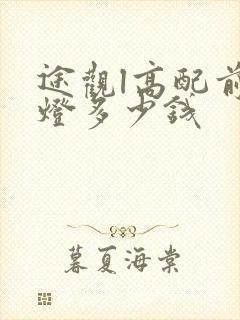 途觀l高配前
燈多少錢
暮夏海棠